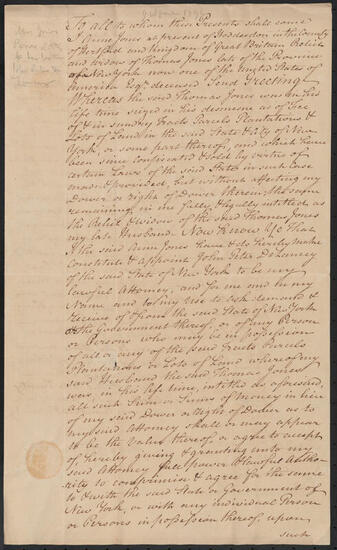 To all to whom these Presents shall come
I Anne Jones at present of Hoddesdon in the County
of Hertford and Kingdom of Great Britain Relict
and widow of Thomas Jones late of the Province
of New York now one of the United States of
America Esqr. deceased Send Greeting
Whereas the said Thomas Jones was in his
life time seized in his demesne as of Fee
of & in sundry Tracts Parcels Plantations &
Lots of Land in the said State & City of New
York, or some part thereof, and which have
been since confiscated & sold by virtue of
certain Laws of the said State in such case
made & provided, but without affecting my
Dower or right of Dower therein; the same
remaining in me fully & legally intitled as
the Relict & widow of the said Thomas Jones
my late Husband. Now Know Ye That
I the said Anne Jones have & do hereby make
Constitute & appoint John Peter Delancey
of the said State of New York to be my
lawful Attorney, and for me and in my
Name and to my use to ask demand &
receive of & from the said State of New York
or the Government thereof, or of any Person
or Persons who may be in possession
of all or any of the said Tracts Parcels
Plantations or Lots of Land whereof my
said Husband the said Thomas Jones
was, in his life time, intitled as aforesaid,
all such Sum or Sums of Money in lieu
of my said Dower or right of Dower as to
my said Attorney shall or may appear
to be the value thereof, or agree to accept
of hereby giving & granting unto my
said Attorney full power & lawful Autho-
rity to compromise & agree for the same
to & with the said State or Government of
New York, or with any individual Person
or Persons in possession thereof, upon
such